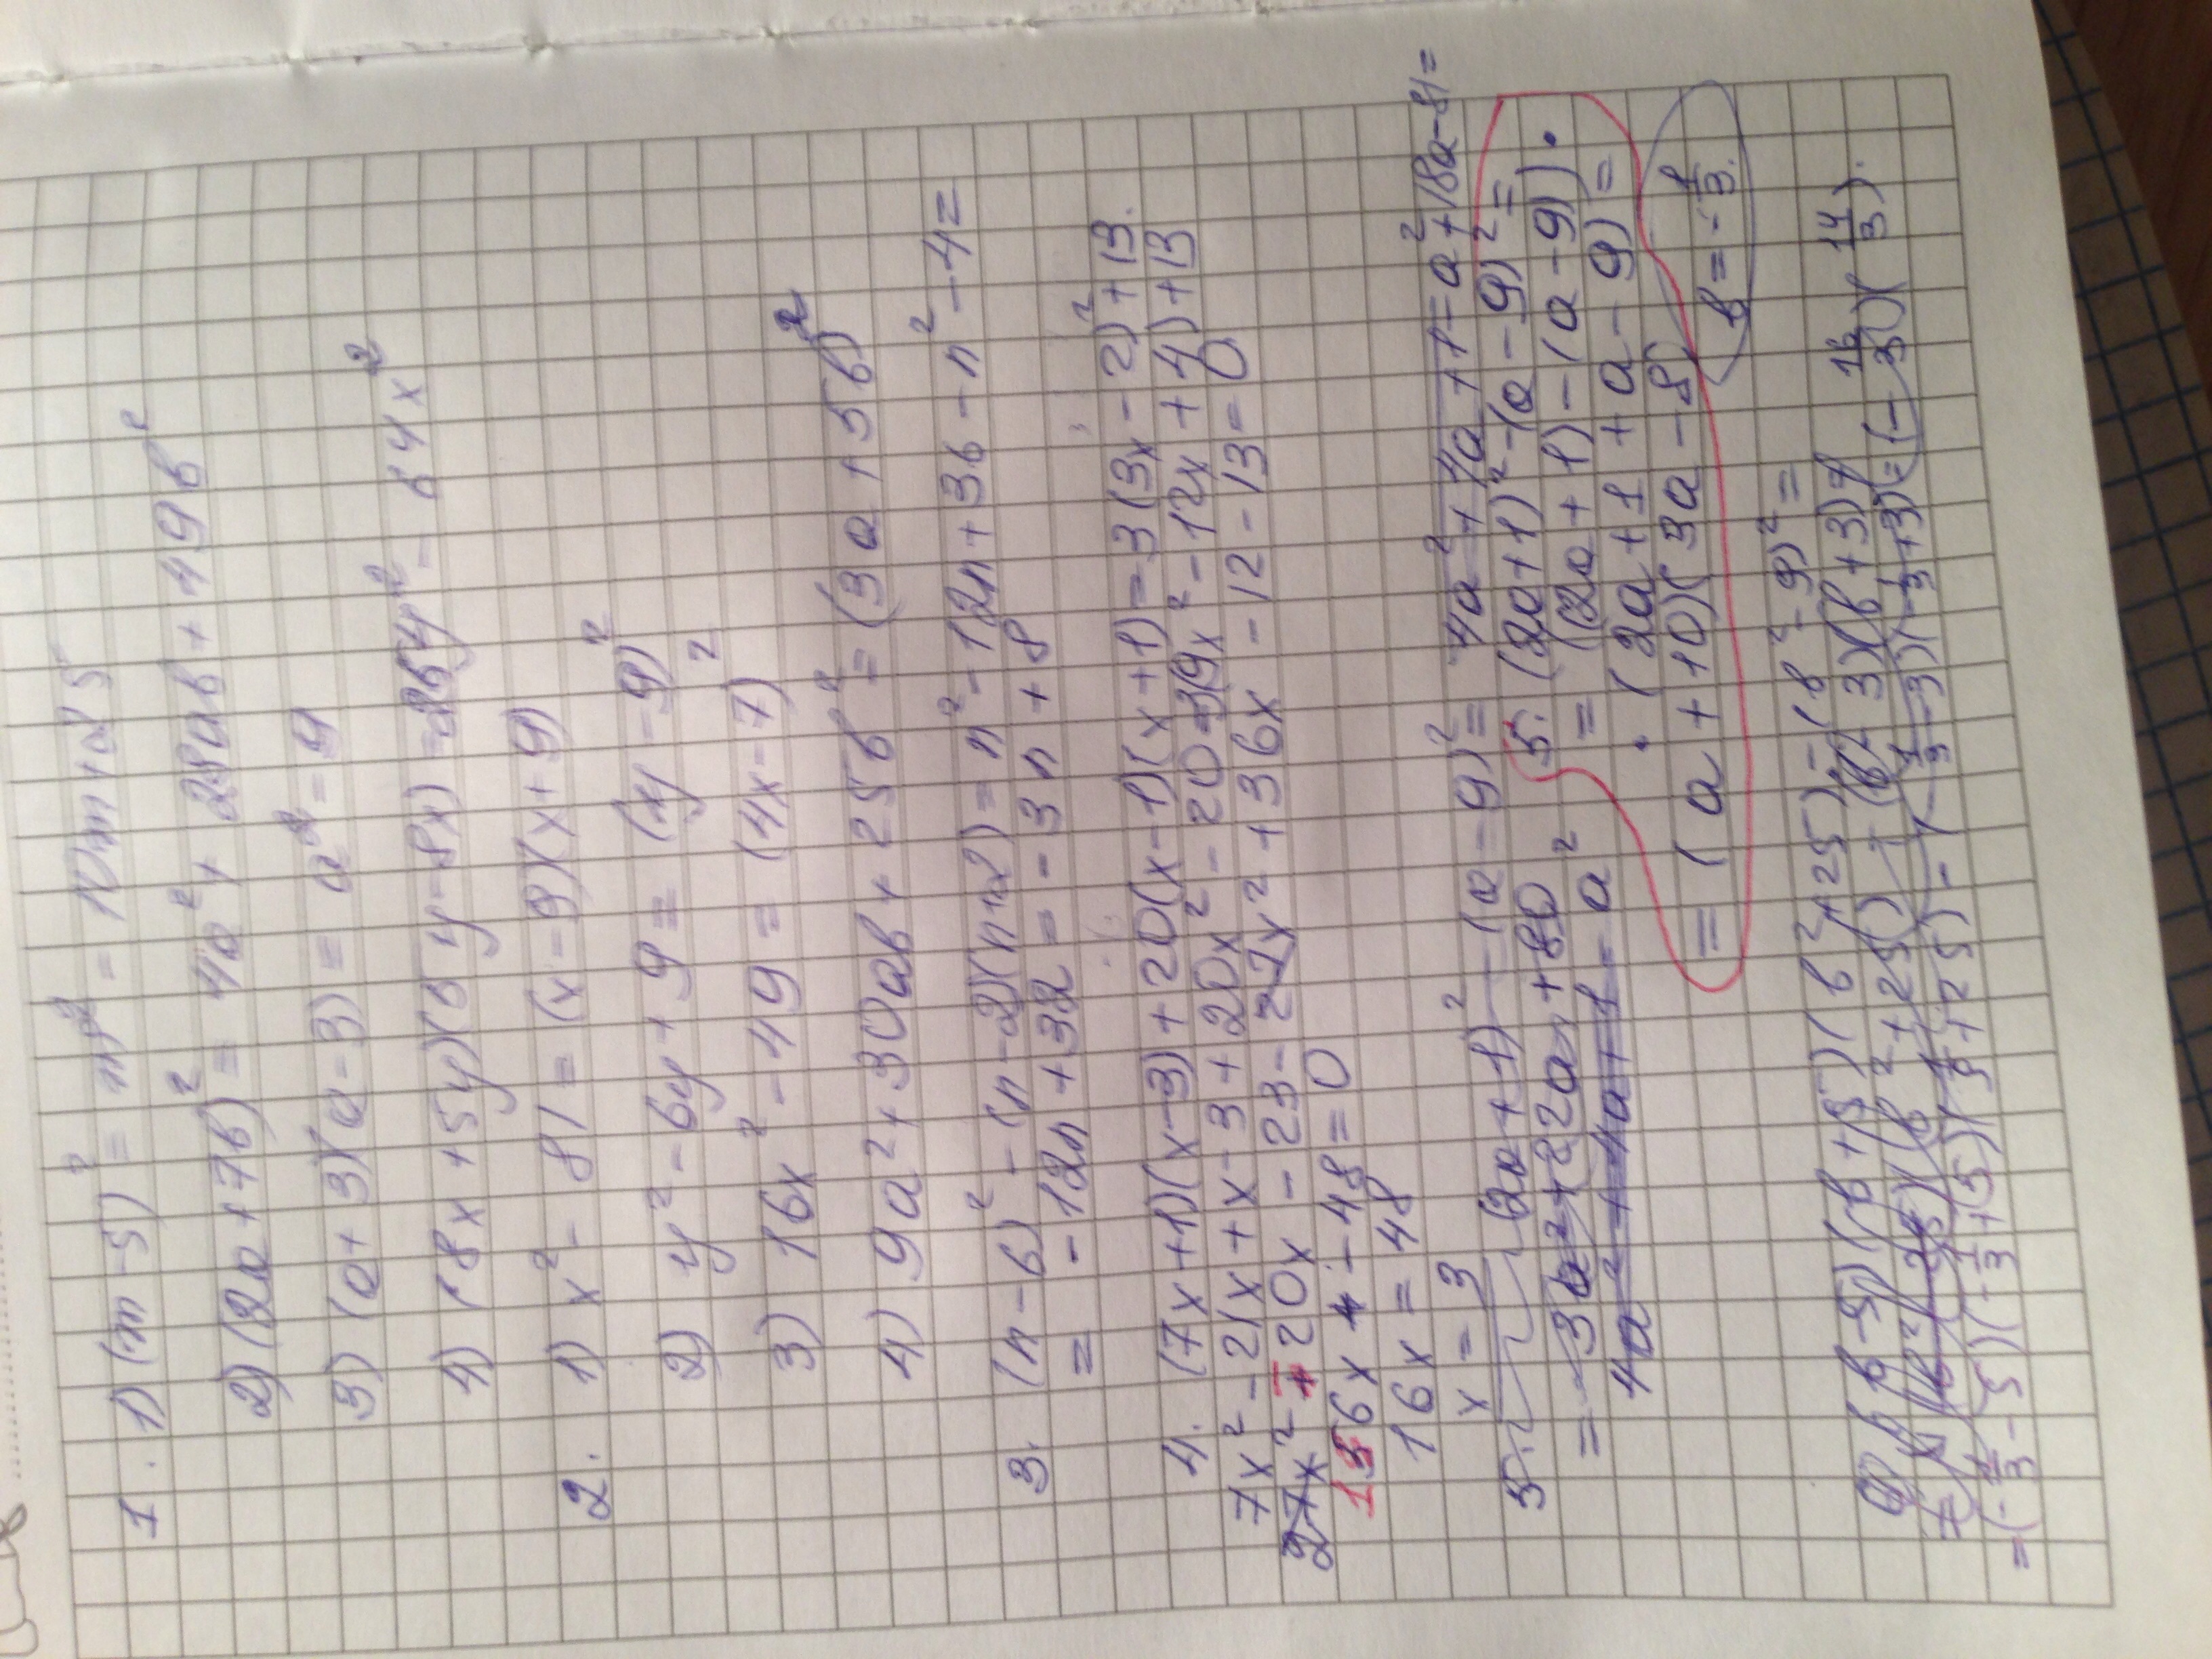 1. 1) (m-5)² = m² - 10m + 25
2) (2a+7b)² = 4a² + 28ab + 49b²
3) (a+3)(a-3) = a² - 9
4) (8x+5y)(5y-8x) = 25y² - 64x²
2. 1) x² - 81 = (x-9)(x+9)
2) y² - 6y + 9 = (y-9)²
3) 16x² - 49 = (4x-7)²
4) 9a² + 30ab + 25b² = (3a+5b)²
3. (n-6)² - (n-2)(n+2) = n² - 12n + 36 - n² - 4 =
= -12n + 32 = -3n + 8
4. (7x+1)(x-3) + 20(x-1)(x+1) = 3(3x-2)² + 13.
7x² - 21x + x - 3 + 20x² - 20 = 3(9x² - 12x + 4) + 13
27x² - 20x - 23 - 27x² + 36x - 12 - 13 = 0
16x - 48 = 0
16x = 48
x = 3
5. (2a+1)² - (a-9)² = 4a² + 4a + 1 - a² + 18a - 81 =
= 3a² + 22a + 80
4a² + 4a + 1 - a²
5. (2a+1)² - (a-9)² =
= ((2a+1) - (a-9)) ·
· (2a+1+a-9) =
= (a+10)(3a-8)
b = -1/3.
(b-5)(b+5)(b²+25) - (b²-9)² =